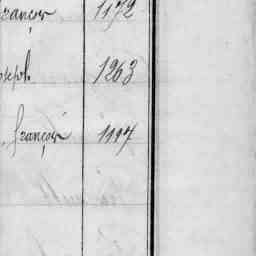 françois 1172
oseph. 1263
, françois 1197